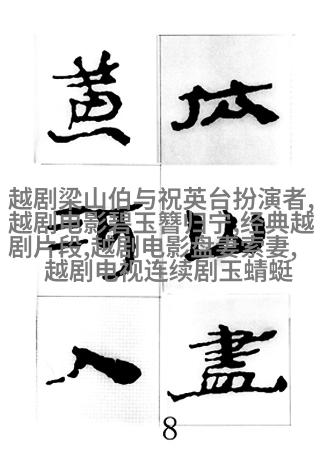 依山盡
黄河入
越剧梁山伯与祝英台扮演者,
越剧电影碧玉簪归宁,经典越
剧片段,越剧电影盘妻索妻,
越剧电视连续剧玉蜻蜓
8